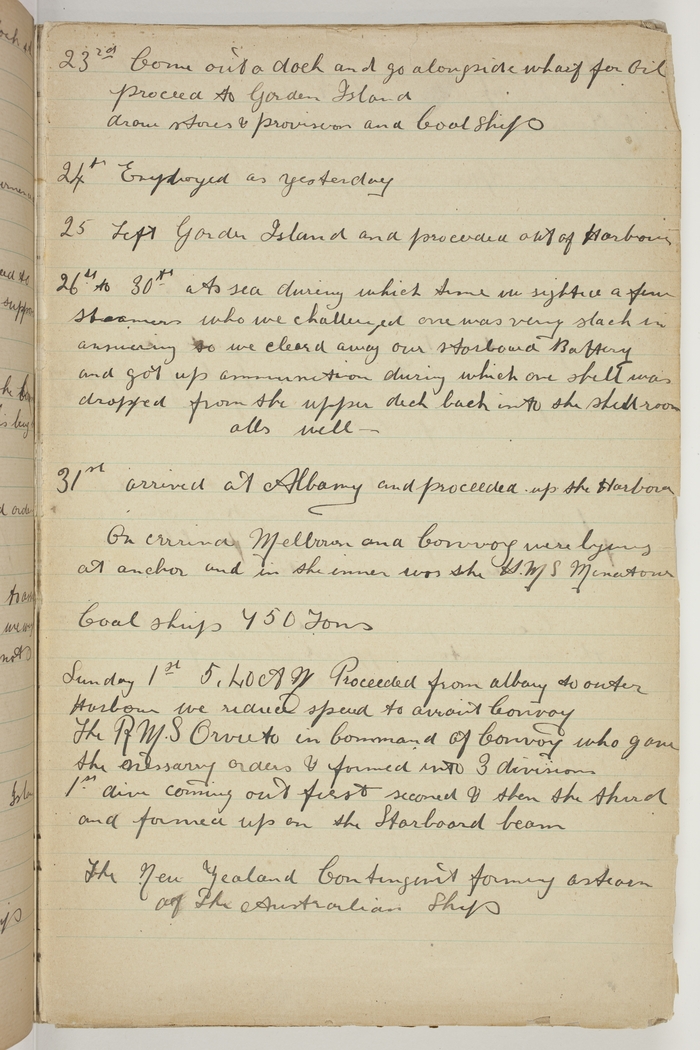 23rd Come out a dock and go alongside wharf for Oil
proceed to Garden Island
draw stores & provision and Coal Ship
24th Employed as yesterday
25 Left Garden Island and proceeded out of Harbour
26th to 30th ats sea during which time we sighted a few
steamers who we challenged one was very slack in
answering so we cleard away our starboard Battery
and got up ammunition during which one shell was
dropped from the upper deck back into the shell room
alls well —
31st arrived at Albany and proceeded up the Harbour
On arrival Melbourn and Convoy were lying
at anchor and in the inner was the H.M.S Minatour
Coal ship 750 Tons
Sunday 1st 5.40 AM Proceeded from albany to outer
Harbour we reduced speed to await Convoy
The R.M.S Orvieto in Command of Convoy who gave
the nessarry orders & formed into 3 divisions
1st dive coming out first second & then the third
and formed up on the Starboard beam
The New Zealand Contingent forming astearn
of The Australian Ships